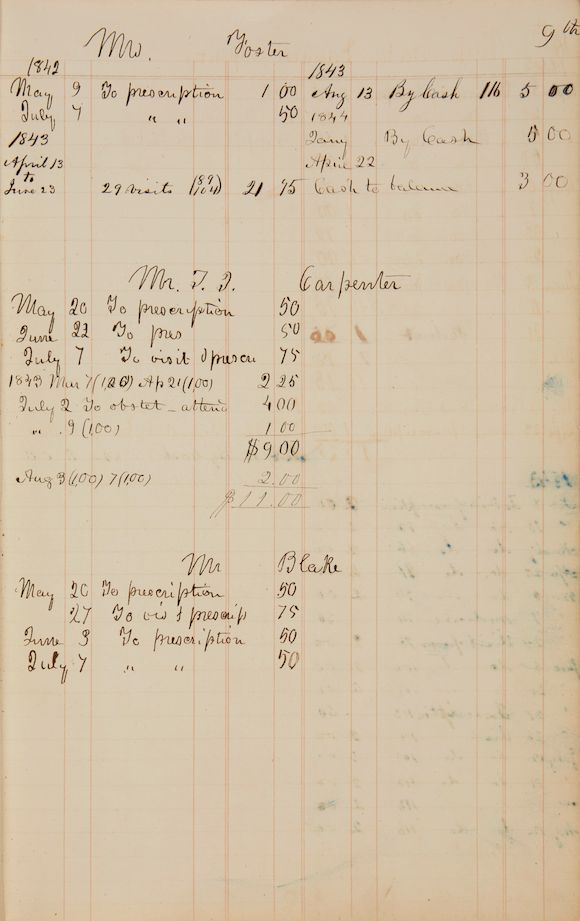 9th
Mrs. Foster
1842
May 9 To prescription 1 00
July 7 " " 50
1843
April 13
to
June 23 29 visits 21 75
1843
Aug 13 By Cash 116 5 00
1844
Jany By Cash 5 00
April 22
Cash to balance 3 00
Mr. T. J. Carpenter
May 20 To prescription 50
June 22 To pres 50
July 7 To visit & prescri 75
1843 Mar 7 Ap 21 (1,00) 2 25
July 2 To obstet - attend 4 00
" 9 (1,00) 1 00
$9.00
Aug 3 (1,00) 7 (1,00) 2.00
$11.00
Mr Blake
May 20 To prescription 50
27 To vis & prescrip 75
June 3 To prescription 50
July 7 " " 50